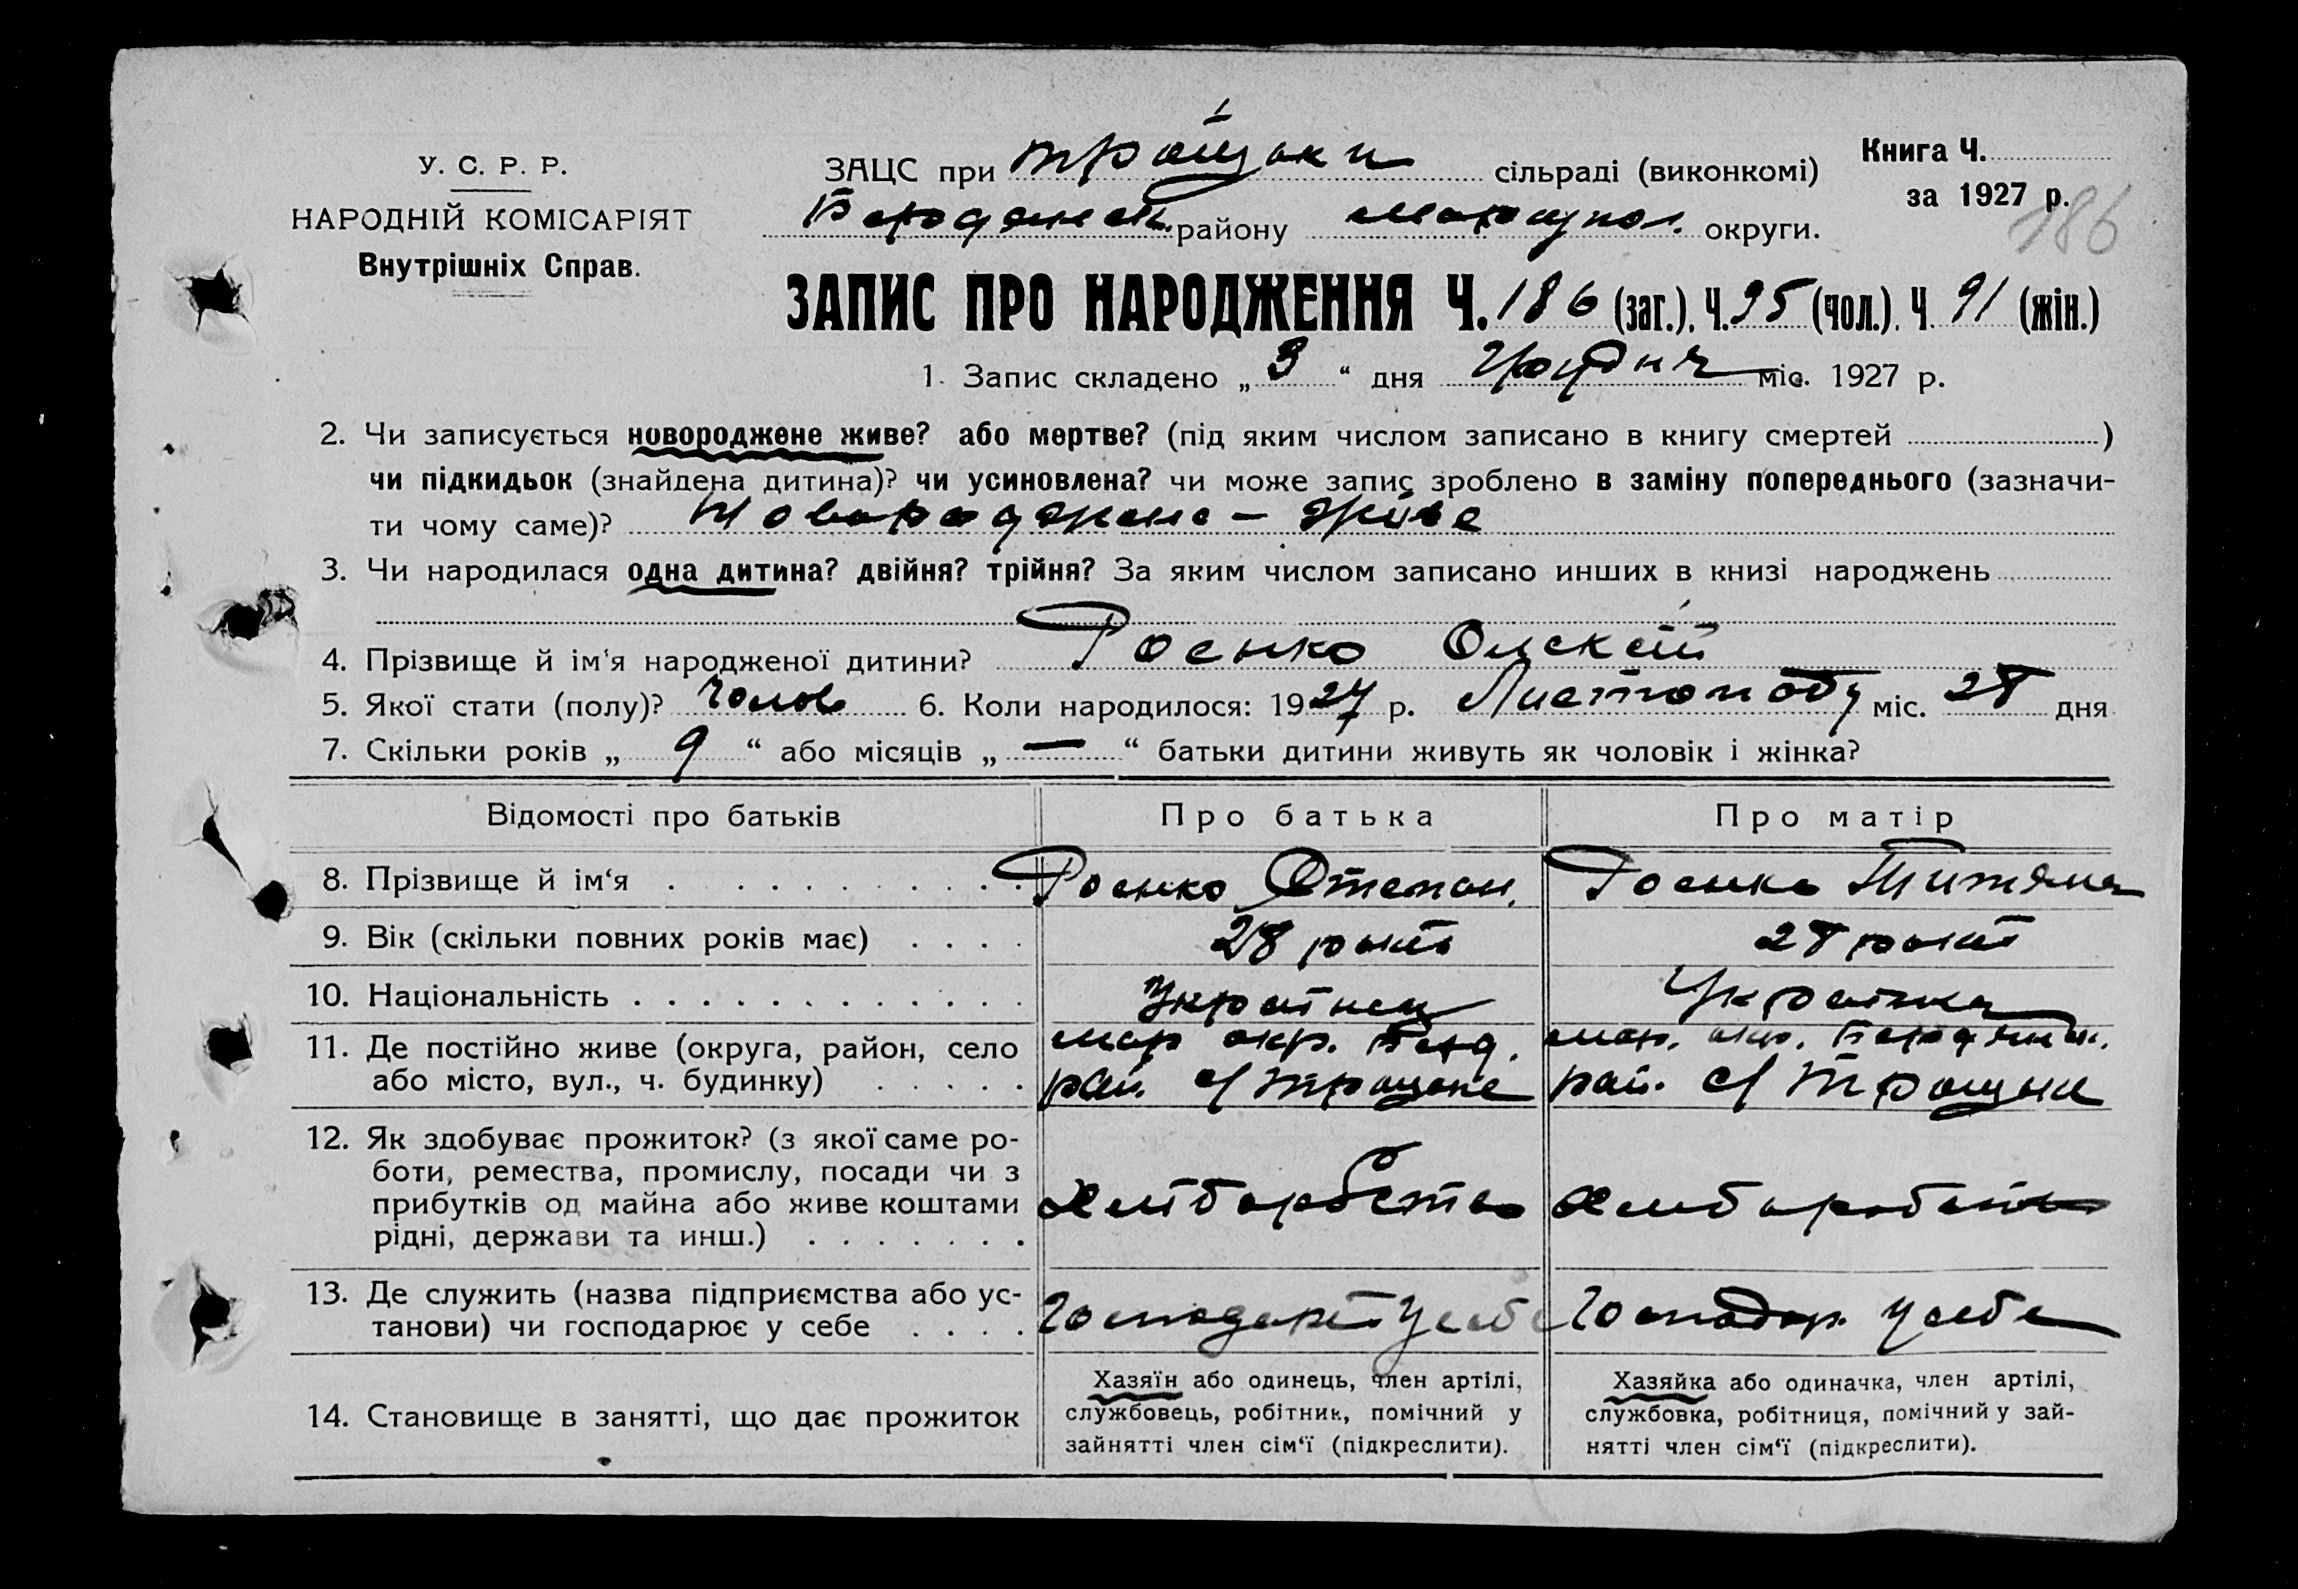 У. С. Р. Р.
НАРОДНІЙ КОМІСАРІЯТ
Внутрішніх Справ.
ЗАЦС при Троїцьки сільраді (виконкомі)
Бердянськ. району Маріупол. округи.
Книга Ч.
за 1927 р.
186
ЗАПИС ПРО НАРОДЖЕННЯ Ч. 186 (заг.). Ч. 95 (чол.). Ч. 91 (жін.)
1. Запис складено „ 3 “ дня Грудня міс. 1927 р.
2. Чи записується новороджене живе? або мертве? (під яким числом записано в книгу смертей )
чи підкидьок (знайдена дитина)? чи усиновлена? чи може запис зроблено в заміну попереднього (зазначи-
ти чому саме)? Новороджене – живе
3. Чи народилася одна дитина? двійня? трійня? За яким числом записано инших в книзі народжень
4. Прізвище й ім'я народженої дитини? Роєнко Олексій
5. Якої стати (полу)? Чолов 6. Коли народилося: 1927 р. Листопаду міс. 28 дня
7. Скільки років „ 9 “ або місяців „ — “ батьки дитини живуть як чоловік і жінка?
Відомості про батьків Про батька Про матір
8. Прізвище й ім‘я Роенко Степан. Роенко Титяна
9. Вік (скільки повних років має) 28 років 28 років
10. Національність Українец Українка
11. Де постійно живе (округа, район, село
або місто, вул., ч. будинку)
мар окр. Берд.
рай. с/
мар. окр. Бердянськ.
рай. с/
12. Як здобуває прожиток? (з якої саме ро-
боти, ремества, промислу, посади чи з
прибутків од майна або живе коштами
рідні, держави та инш.)
Хліборобство Хліборобство
13. Де служить (назва підприємства або ус-
танови) чи господарює у себе
Господарює У себе Господар. у себе
14. Становище в занятті, що дає прожиток
Хазяїн або одинець, член артілі,
службовець, робітник, помічний у
зайнятті член сім‘ї (підкреслити).
Хазяйка або одиначка, член артілі,
службовка, робітниця, помічний у зай-
нятті член сім‘ї (підкреслити).